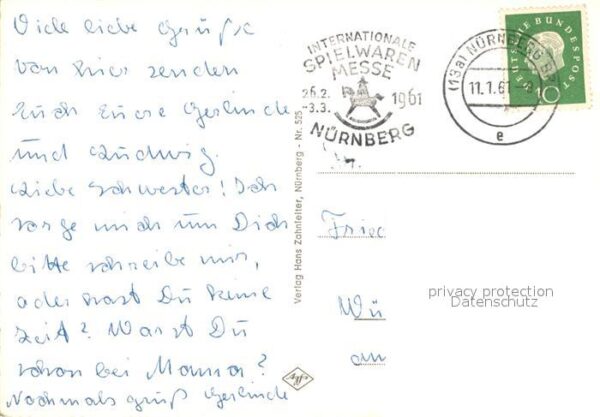 Viele liebe Grüße
von hier senden
Euch Eure Gerlinde
und Ludwig.
Liebe Schwester! Ich
sorge mich um Dich
bitte schreibe mir,
oder hast Du keine
Zeit? Warst Du
schon bei Mama?
Nochmals gruß Gerlinde
Verlag Hans Zahnfelter, Nürnberg - Nr. 525
INTERNATIONALE
SPIELWAREN
MESSE
26.2.
-3.3.
1961
NÜRNBERG
(13a) NÜRNBERG
11.1.61
e
DEUTSCHE BUNDESPOST
10
Frie
Wü
am
privacy protection
Datenschutz